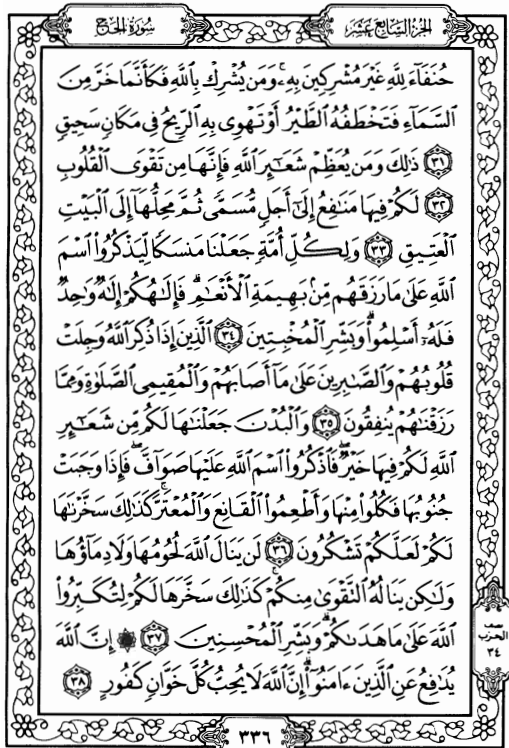 سُورَةُ الحَجِّ
الجُزْءُ السَّابِعَ عَشَرَ
حُنَفَآءَ لِلَّهِ غَيْرَ مُشْرِكِينَ بِهِۦ ۚ وَمَن يُشْرِكْ بِٱللَّهِ فَكَأَنَّمَا خَرَّ مِنَ
ٱلسَّمَآءِ فَتَخْطَفُهُ ٱلطَّيْرُ أَوْ تَهْوِى بِهِ ٱلرِّيحُ فِى مَكَانٍ سَحِيقٍ
٣١ ذَٰلِكَ وَمَن يُعَظِّمْ شَعَـٰٓئِرَ ٱللَّهِ فَإِنَّهَا مِن تَقْوَى ٱلْقُلُوبِ
٣٢ لَكُمْ فِيهَا مَنَـٰفِعُ إِلَىٰٓ أَجَلٍ مُّسَمًّى ثُمَّ مَحِلُّهَآ إِلَى ٱلْبَيْتِ
ٱلْعَتِيقِ ٣٣ وَلِكُلِّ أُمَّةٍ جَعَلْنَا مَنسَكًا لِّيَذْكُرُوا۟ ٱسْمَ
ٱللَّهِ عَلَىٰ مَا رَزَقَهُم مِّنۢ بَهِيمَةِ ٱلْأَنْعَـٰمِ ۗ فَإِلَـٰهُكُمْ إِلَـٰهٌ وَٰحِدٌ
فَلَهُۥٓ أَسْلِمُوا۟ ۗ وَبَشِّرِ ٱلْمُخْبِتِينَ ٣٤ ٱلَّذِينَ إِذَا ذُكِرَ ٱللَّهُ وَجِلَتْ
قُلُوبُهُمْ وَٱلصَّـٰبِرِينَ عَلَىٰ مَآ أَصَابَهُمْ وَٱلْمُقِيمِى ٱلصَّلَوٰةِ وَمِمَّا
رَزَقْنَـٰهُمْ يُنفِقُونَ ٣٥ وَٱلْبُدْنَ جَعَلْنَـٰهَا لَكُم مِّن شَعَـٰٓئِرِ
ٱللَّهِ لَكُمْ فِيهَا خَيْرٌ ۖ فَٱذْكُرُوا۟ ٱسْمَ ٱللَّهِ عَلَيْهَا صَوَآفَّ ۖ فَإِذَا وَجَبَتْ
جُنُوبُهَا فَكُلُوا۟ مِنْهَا وَأَطْعِمُوا۟ ٱلْقَانِعَ وَٱلْمُعْتَرَّ ۚ كَذَٰلِكَ سَخَّرْنَـٰهَا
لَكُمْ لَعَلَّكُمْ تَشْكُرُونَ ٣٦ لَن يَنَالَ ٱللَّهَ لُحُومُهَا وَلَا دِمَآؤُهَا
وَلَـٰكِن يَنَالُهُ ٱلتَّقْوَىٰ مِنكُمْ ۚ كَذَٰلِكَ سَخَّرَهَا لَكُمْ لِتُكَبِّرُوا۟
ٱللَّهَ عَلَىٰ مَا هَدَىٰكُمْ ۗ وَبَشِّرِ ٱلْمُحْسِنِينَ ٣٧ ۞ إِنَّ ٱللَّهَ
يُدَٰفِعُ عَنِ ٱلَّذِينَ ءَامَنُوٓا۟ ۗ إِنَّ ٱللَّهَ لَا يُحِبُّ كُلَّ خَوَّانٍ كَفُورٍ ٣٨
نصف
الحزب
٣٤
٣٣٦